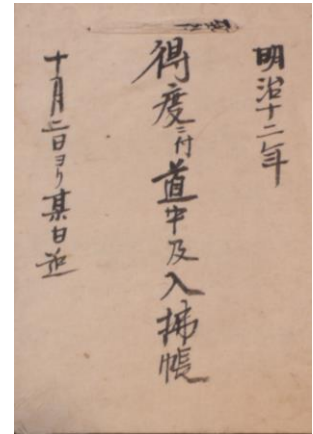 明治十二年
得度ニ付道中及入拂帳
十月二日ヨリ某日迄